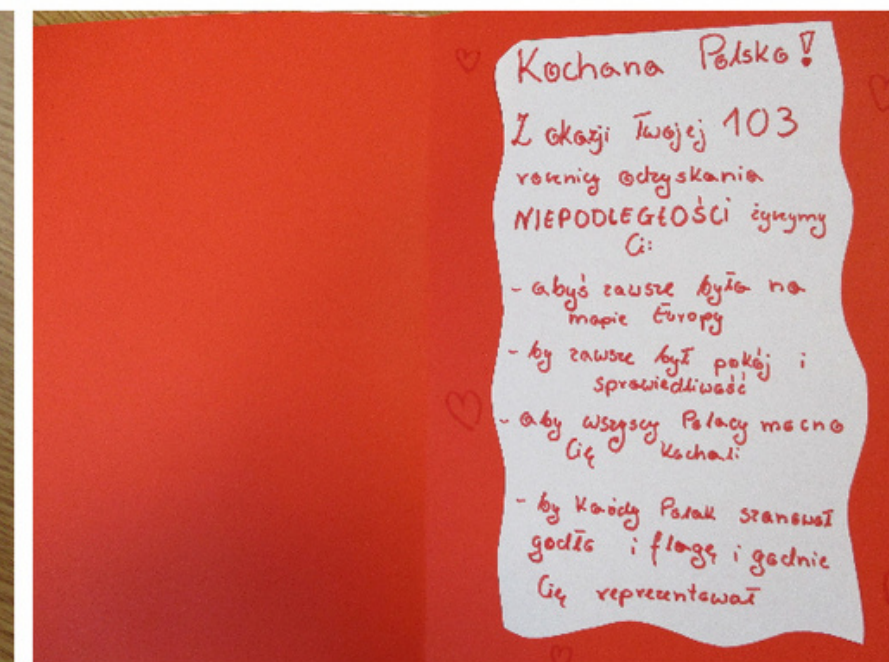 Kochana Polsko!
Z okazji Twojej 103
rocznicy odzyskania
NIEPODLEGŁOŚCI życzymy
Ci:
- abyś zawsze była na
mapie Europy
- by zawsze był pokój i
sprawiedliwość
- aby wszyscy Polacy mocno
Cię kochali
- by każdy Polak szanował
godło i flagę i godnie
Cię reprezentował